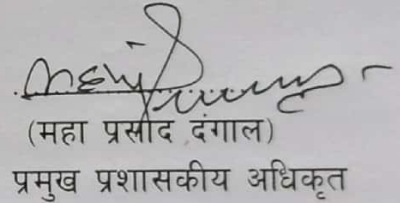 (महा प्रसाद दंगाल)
प्रमुख प्रशासकीय अधिकृत